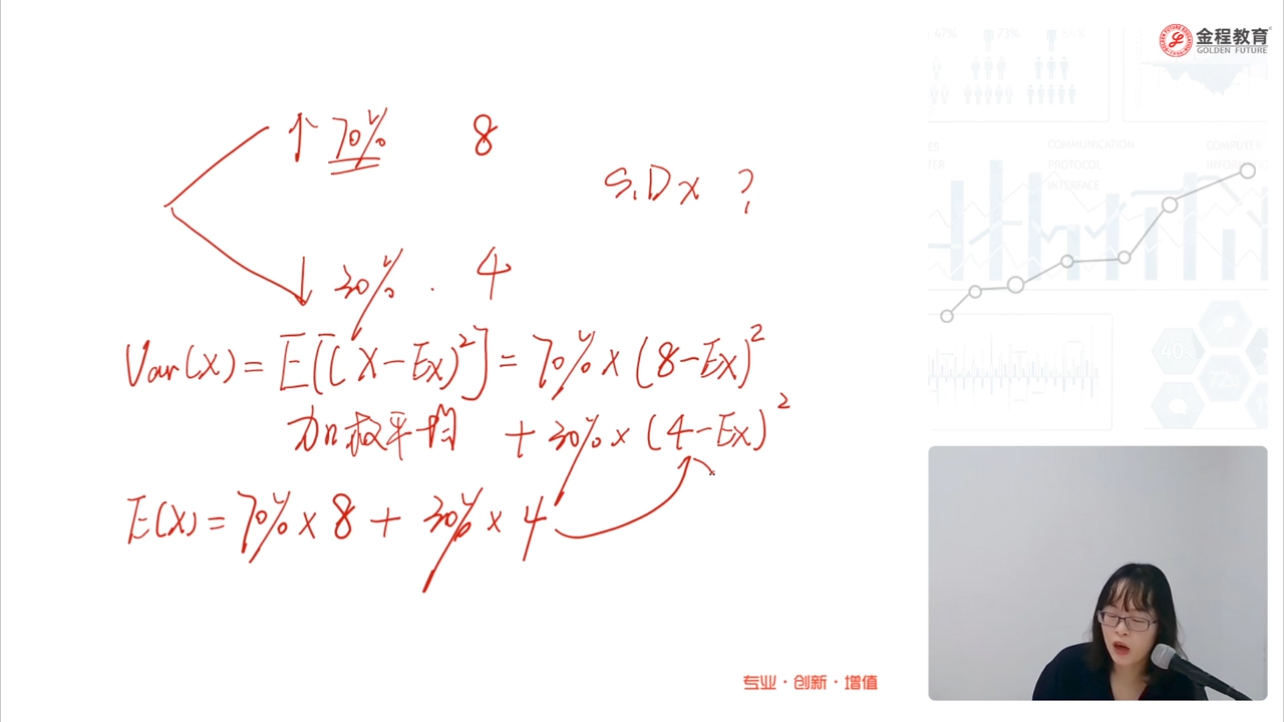 金程教育
GOLDEN FUTURE
47% 73%
↑ 70% 8
S.D x ?
↓ 30% . 4
COMMUNICATION
PROTOCOL
INTERFACE
COMPUTER
Var(X) = E[(X-Ex)²] = 70% x (8-Ex)²
加权平均 + 30% x (4-Ex)²
40%
72%
E(X) = 70% x 8 + 30% x 4
专业·创新·增值